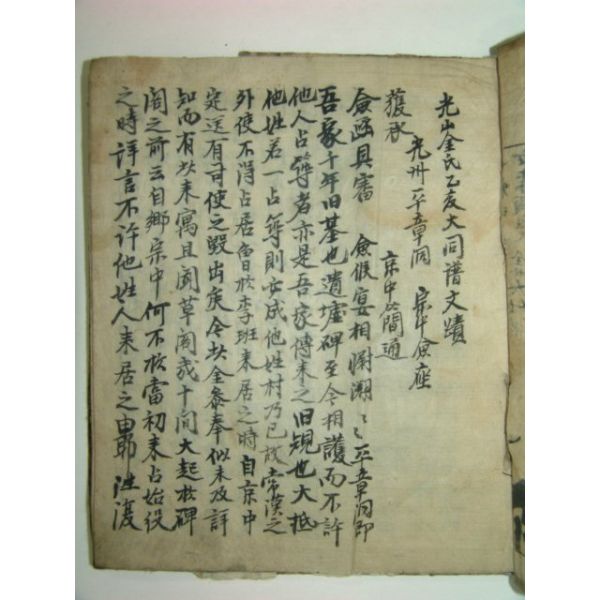 光山金氏乙亥大同譜文蹟
光州平章洞 宗中僉座
京中簡通
獲承
僉函具審 僉候宴相慰溯〻平章洞卽
吾家千年旧基也遺墟碑至今相護而不許
他人占葬者亦是吾家傳來之旧規也大抵
他姓若一占葬則安成他姓村乃已故常漢之
外使不得占居曾於李班來居之時自京中
定送有司使之毀出矣今此金參奉似未及詳
知而有此來寓且閣草閣幾十間大起於碑
閣之前云自鄉宗中何不於當初來占始役
之時詳言不許他姓人來居之由耶 往復